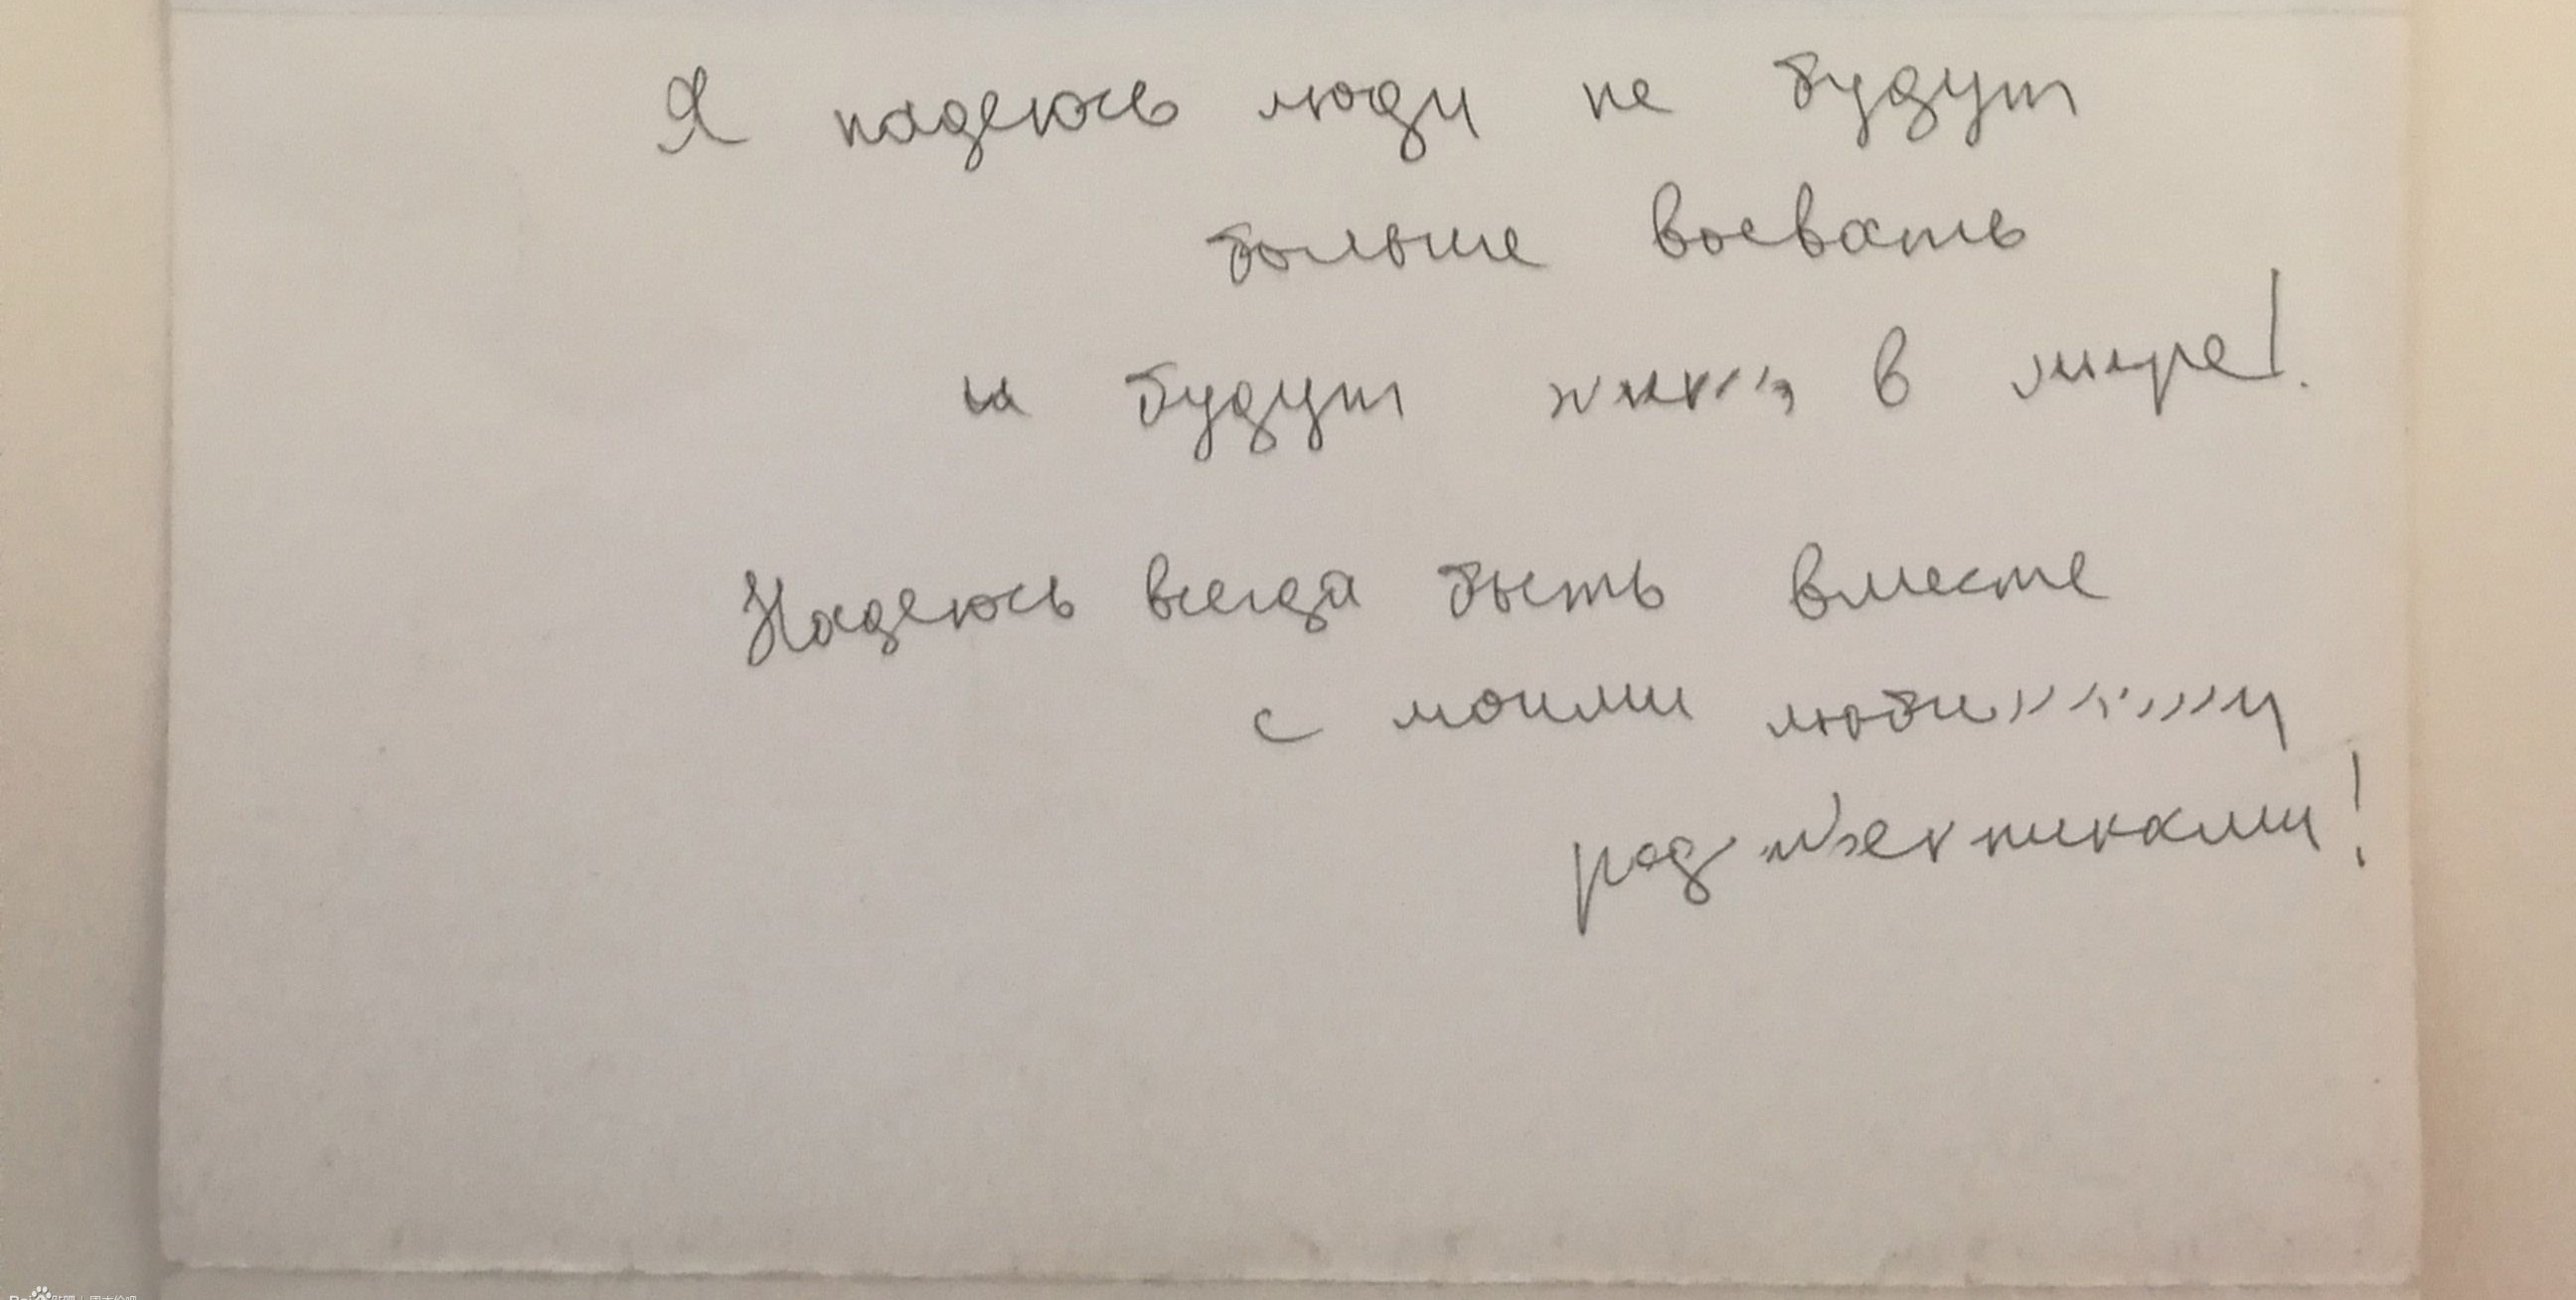 Я надеюсь люди не будут
больше воевать
и будут жить в мире!
Надеюсь всегда быть вместе
с моими любимыми
родственниками!